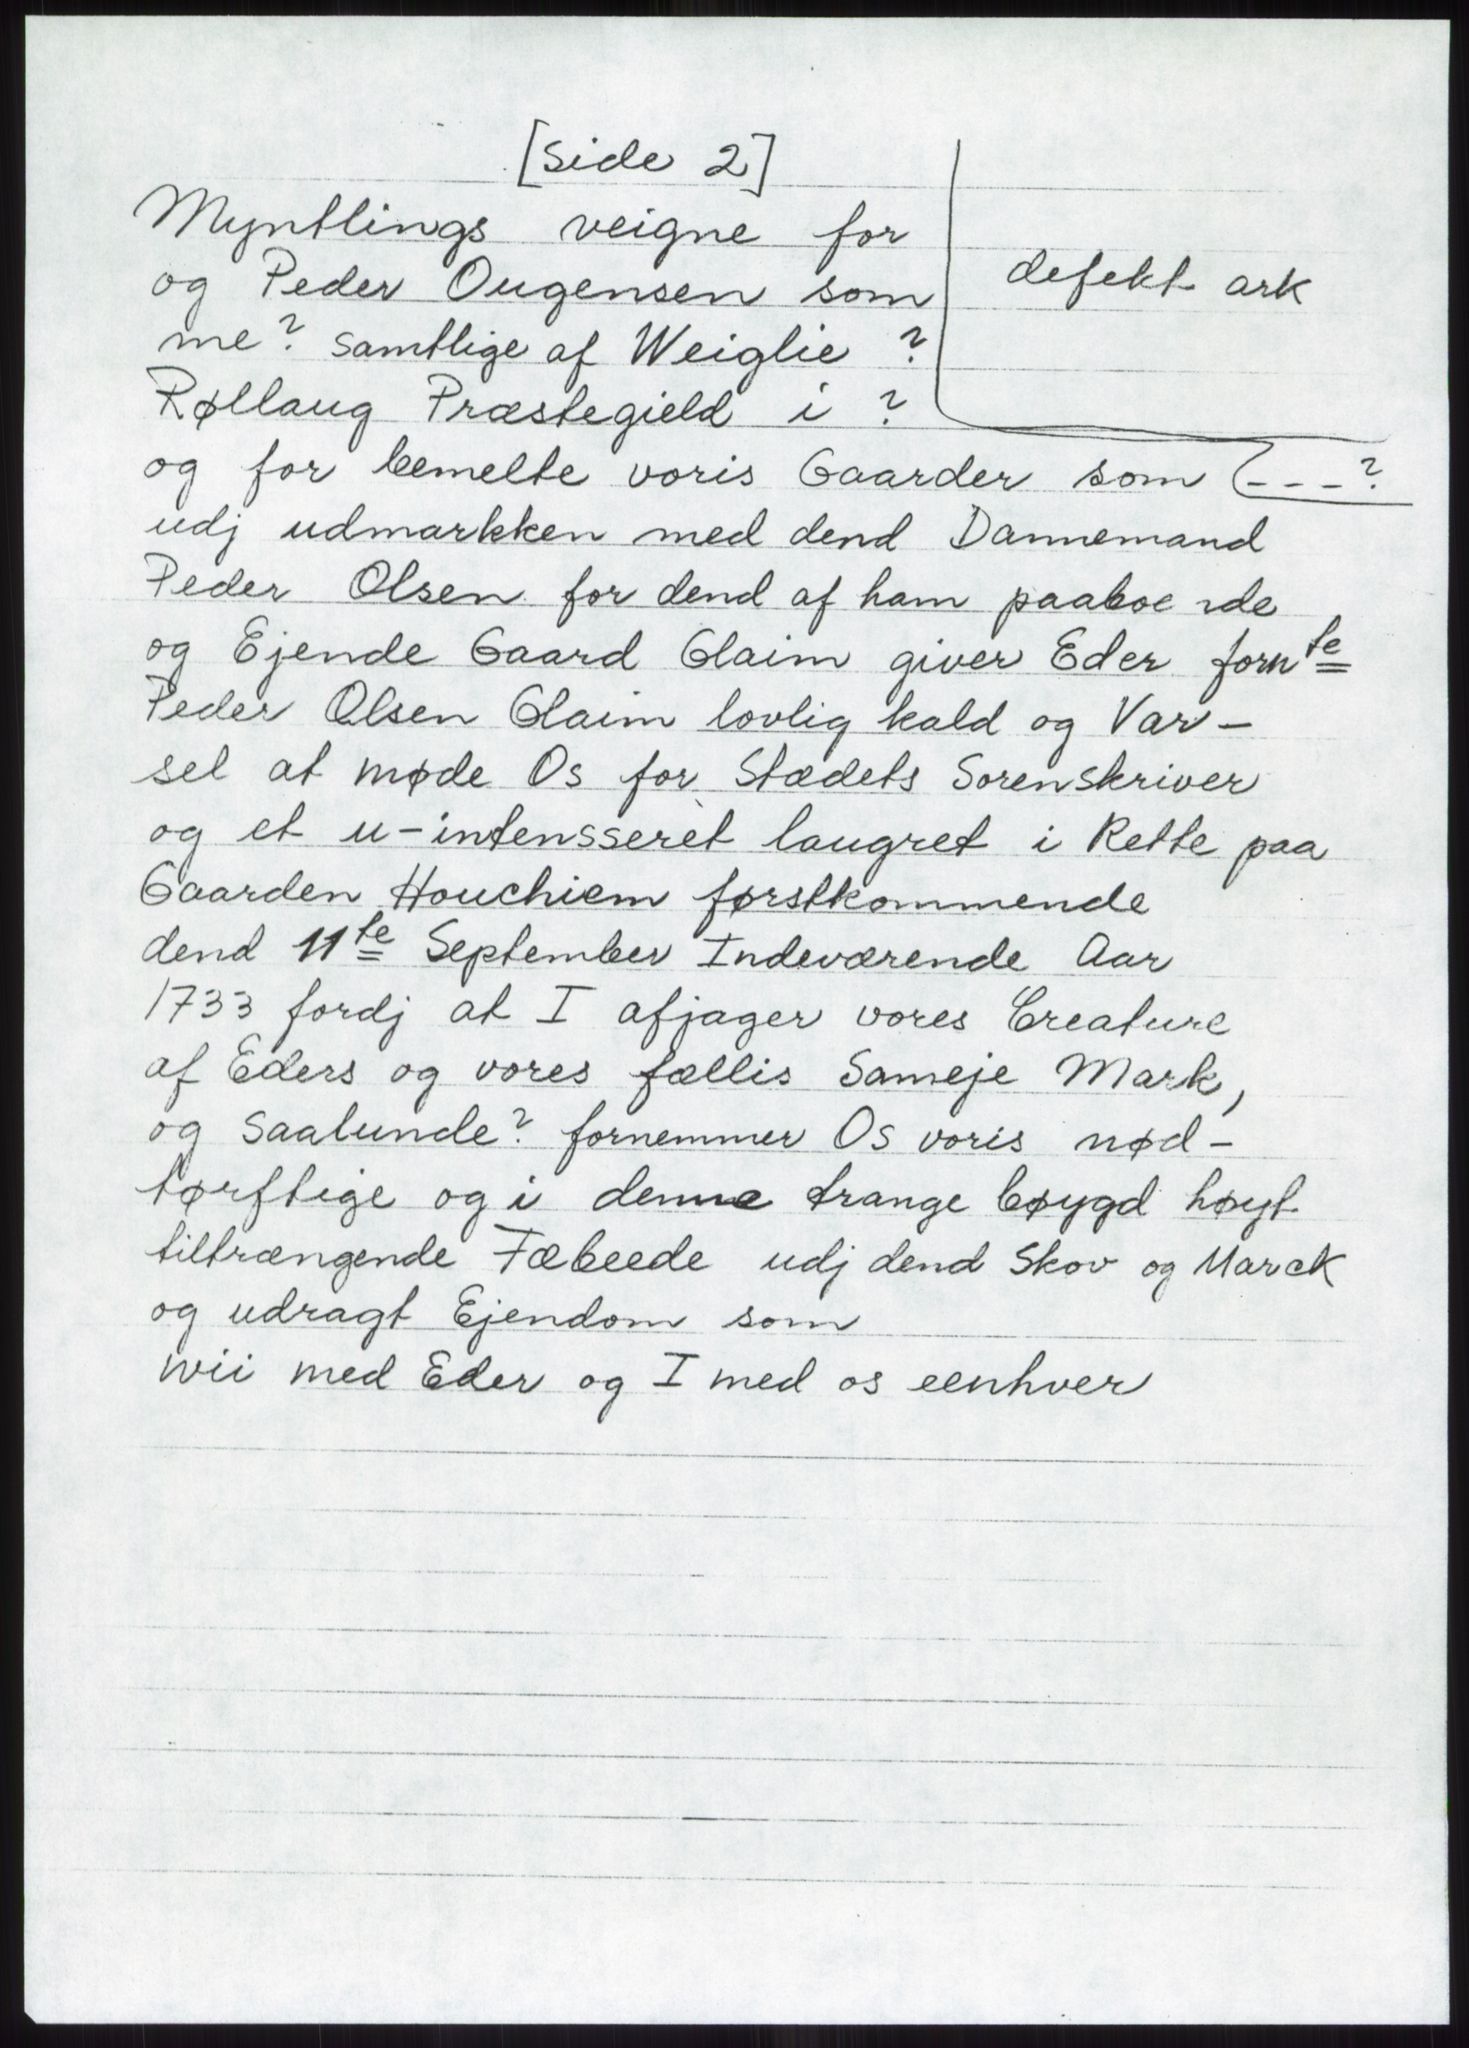 [side 2]
Myntlings veigne for
og Peder Ougensen som
defekt ark
me? samtlige af Weiglie ?
Røllaug Præstegield i ?
og for bemelte voris Gaarder som (---?
udj udmarkken med dend Dannemand
Peder Olsen for dend af ham paaboe de
og Ejende Gaard Glaim giver Eder forn te
Peder Olsen Glaim lovlig kald og Var-
sel at møde Os for Stædets Sorenskriver
og et u-intensseret laugret i Rette paa
Gaarden Houchiem førstkommende
dend 11te September Indeværende Aar
1733 fordj at I afjager vores Creature
af Eders og vores fællis Sameje Mark,
og saalunde? fornemmer Os voris nød-
tørftige og i denne trange bøygd høyt
tiltrængende Fæbeede udj dend Skov og Marck
og udragt Ejendom som
wii med Eder og I med os eenhver